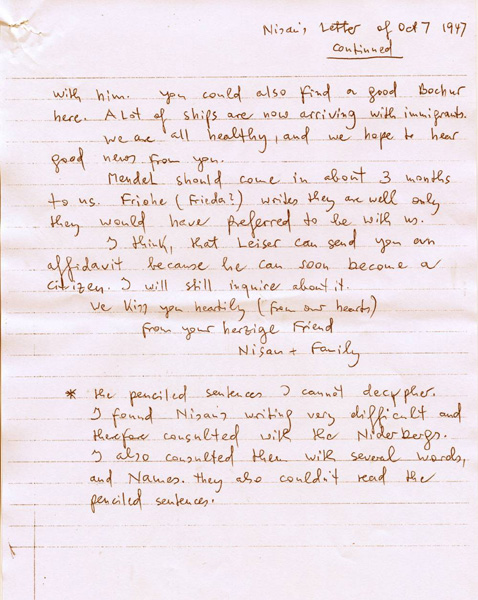 Nisan's Letter of Oct 7 1947
continued
with him. you could also find a good Bochur
here. A Lot of ships are now arriving with immigrants.
we are all healthy, and we hope to hear
good news from you.
Mendel should come in about 3 months
to us. Friohe (Frieda?) writes they are well only
they would have preferred to be with us.
I think, that Leiser can send you an
affidavit because he can soon become a
citizen. I will still inquire about it.
We Kiss you heartily (from our hearts)
From your herzige Friend
Nisan + Family
* the penciled sentences I cannot decypher.
I found Nisan's writing very difficult and
therefore consulted with the Niderbergs.
I also consulted them with several words,
and Names. they also couldn't read the
penciled sentences.